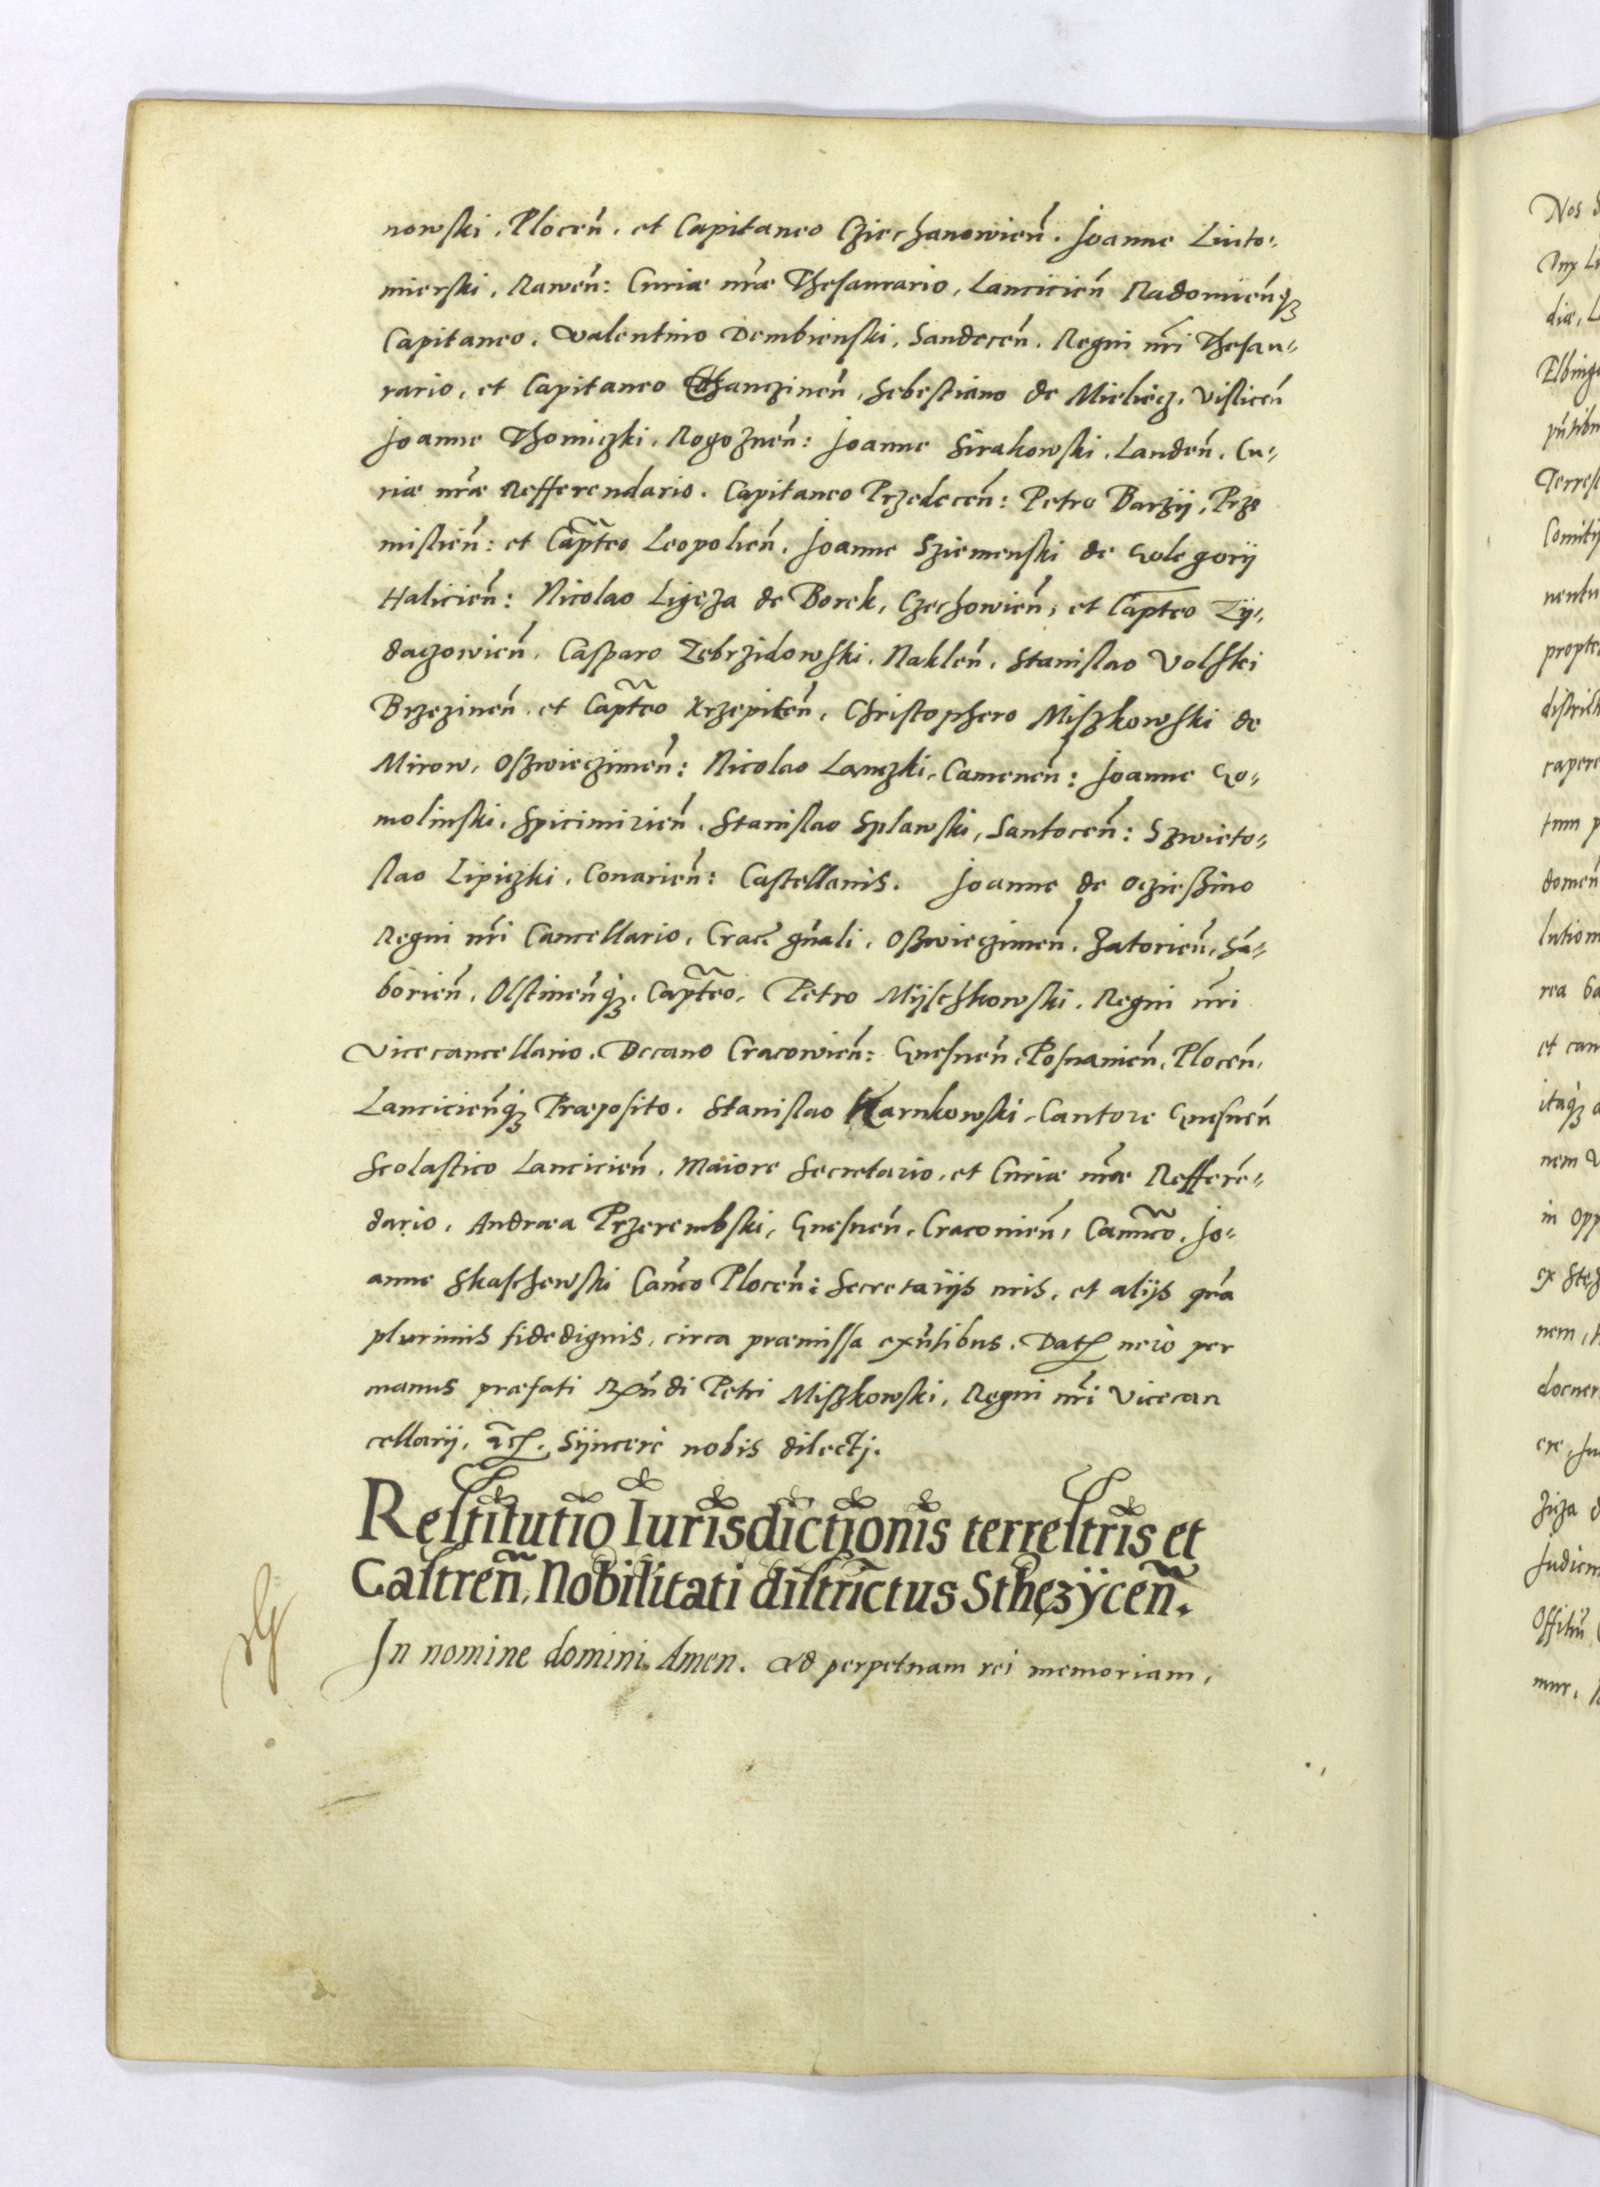 nowski. Plocen̄. et Capitaneo Cziechanowien̄. Joanne Luto-
mierski. Rawen̄: Curiæ nr̄æ Thesaurario, Lancicien̄ Radomien̄q3
Capitaneo. Valentino Dembienski. Sandecen̄. Regni nr̄i Thesau-
rario, et Capitaneo Chanczinen̄, Sebestiano de Mielięcz. Vislicen̄
Joanne Thomiczki. Rogoznen̄: Joanne Sirakowski. Landen̄. Cu-
riæ nr̄æ Refferendario. Capitaneo Przedecen̄: Petro Barzij, Prze
mislien̄: et Cap̄teo Leopolien̄, Joanne Sziemenski de Golegorij
Halicien̄: Nicolao Ligęza de Borek, Czechowien̄, et Cap̄teo Zij-
daczowien̄. Casparo Zebrzidowski. Naklen̄. Stanislao Volski
Brzezinen̄. et Cap̄teo Krzepicen̄, Christophero Miszkowski de
Mirow, Oszwieczimen̄: Nicolao Lanczki. Camenen̄: Joanne Go-
molinski. Spicimirien̄. Stanislao Splawski, Santocen̄: Szwieto-
slao Lipiczki. Conarien̄: Castellanis. Joanne de Oczieszino
Regni nr̄i Cancellario, Crac̄ gn̄ali. Oszwieczimen̄. Zatorien̄. Sā-
borien̄. Olstinen̄q3. Cap̄teo. Petro Mijschkowski. Regni nr̄i
Vicecancellario. Decano Cracowien̄: Gnesnen̄. Posnanien̄. Plocen̄.
Lancicien̄q3 Præposito. Stanislao Karnkowski. Cantore Gnesnen̄
Scolastico Lancicien̄. Maiore Secretario, et Curiæ nr̄æ Refferē-
dario. Andræa Przerembski, Gnesnen̄. Cracouien̄, Can̄nco. Jo-
anne Skaschewski Can̄co Plocen̄: Secretarijs nr̄is, et alijs qn̄a
plurimis fidedignis, circa præmissa exn̄tibus. Dat. vero per
manus præfati Rn̄di Petri Miszkowski, Regni nr̄i Vicecan
cellarij, Sijncere nobis dilecti.
Restitutio Iurisdictionis terrestris et
Castren̄. Nobilitati districtus Sthęzÿcen̄.
In nomine domini Amen. Ad perpetuam rei memoriam,